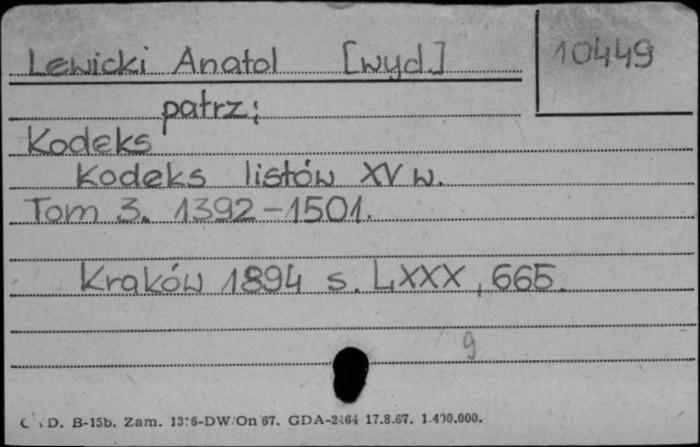 Lewicki Anatol [wyd.]
10449
patrz:
Kodeks
Kodeks listów XV w.
Tom 3. 1392-1501.
Kraków 1894 s. LXXX, 665.
9
D. B-15b. Zam. 1376-DW/On/67. GDA-2464 17.8.67. 1.400.000.